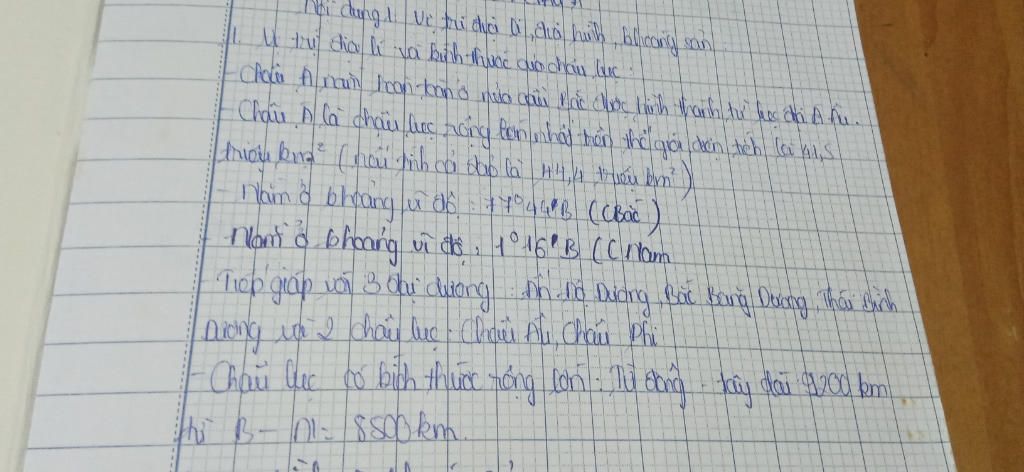 Nội dung 1. Vị trí địa lí, địa hình, khoáng sản
1. Vị trí địa lí và kích thước của châu lục:
- Châu Á nằm hoàn toàn ở nửa cầu Bắc được hình thành từ lục địa Á Âu.
- Châu Á là châu lục rộng lớn nhất trên thế giới diện tích là 41,5
triệu km² (nếu tính cả đảo là 44,4 triệu km²)
- Nằm ở khoảng vĩ độ: 77°44'B (CBắc)
- Nằm ở khoảng vĩ độ: 1°16'B (CNam
Tiếp giáp với 3 đại dương: Ấn Độ Dương, Bắc Băng Dương, Thái Bình
Dương với 2 châu lục: Châu Âu, Châu Phi
- Châu lục có kích thước rộng lớn: Từ đông - tây dài 9200 km
thì B - N = 8500km.